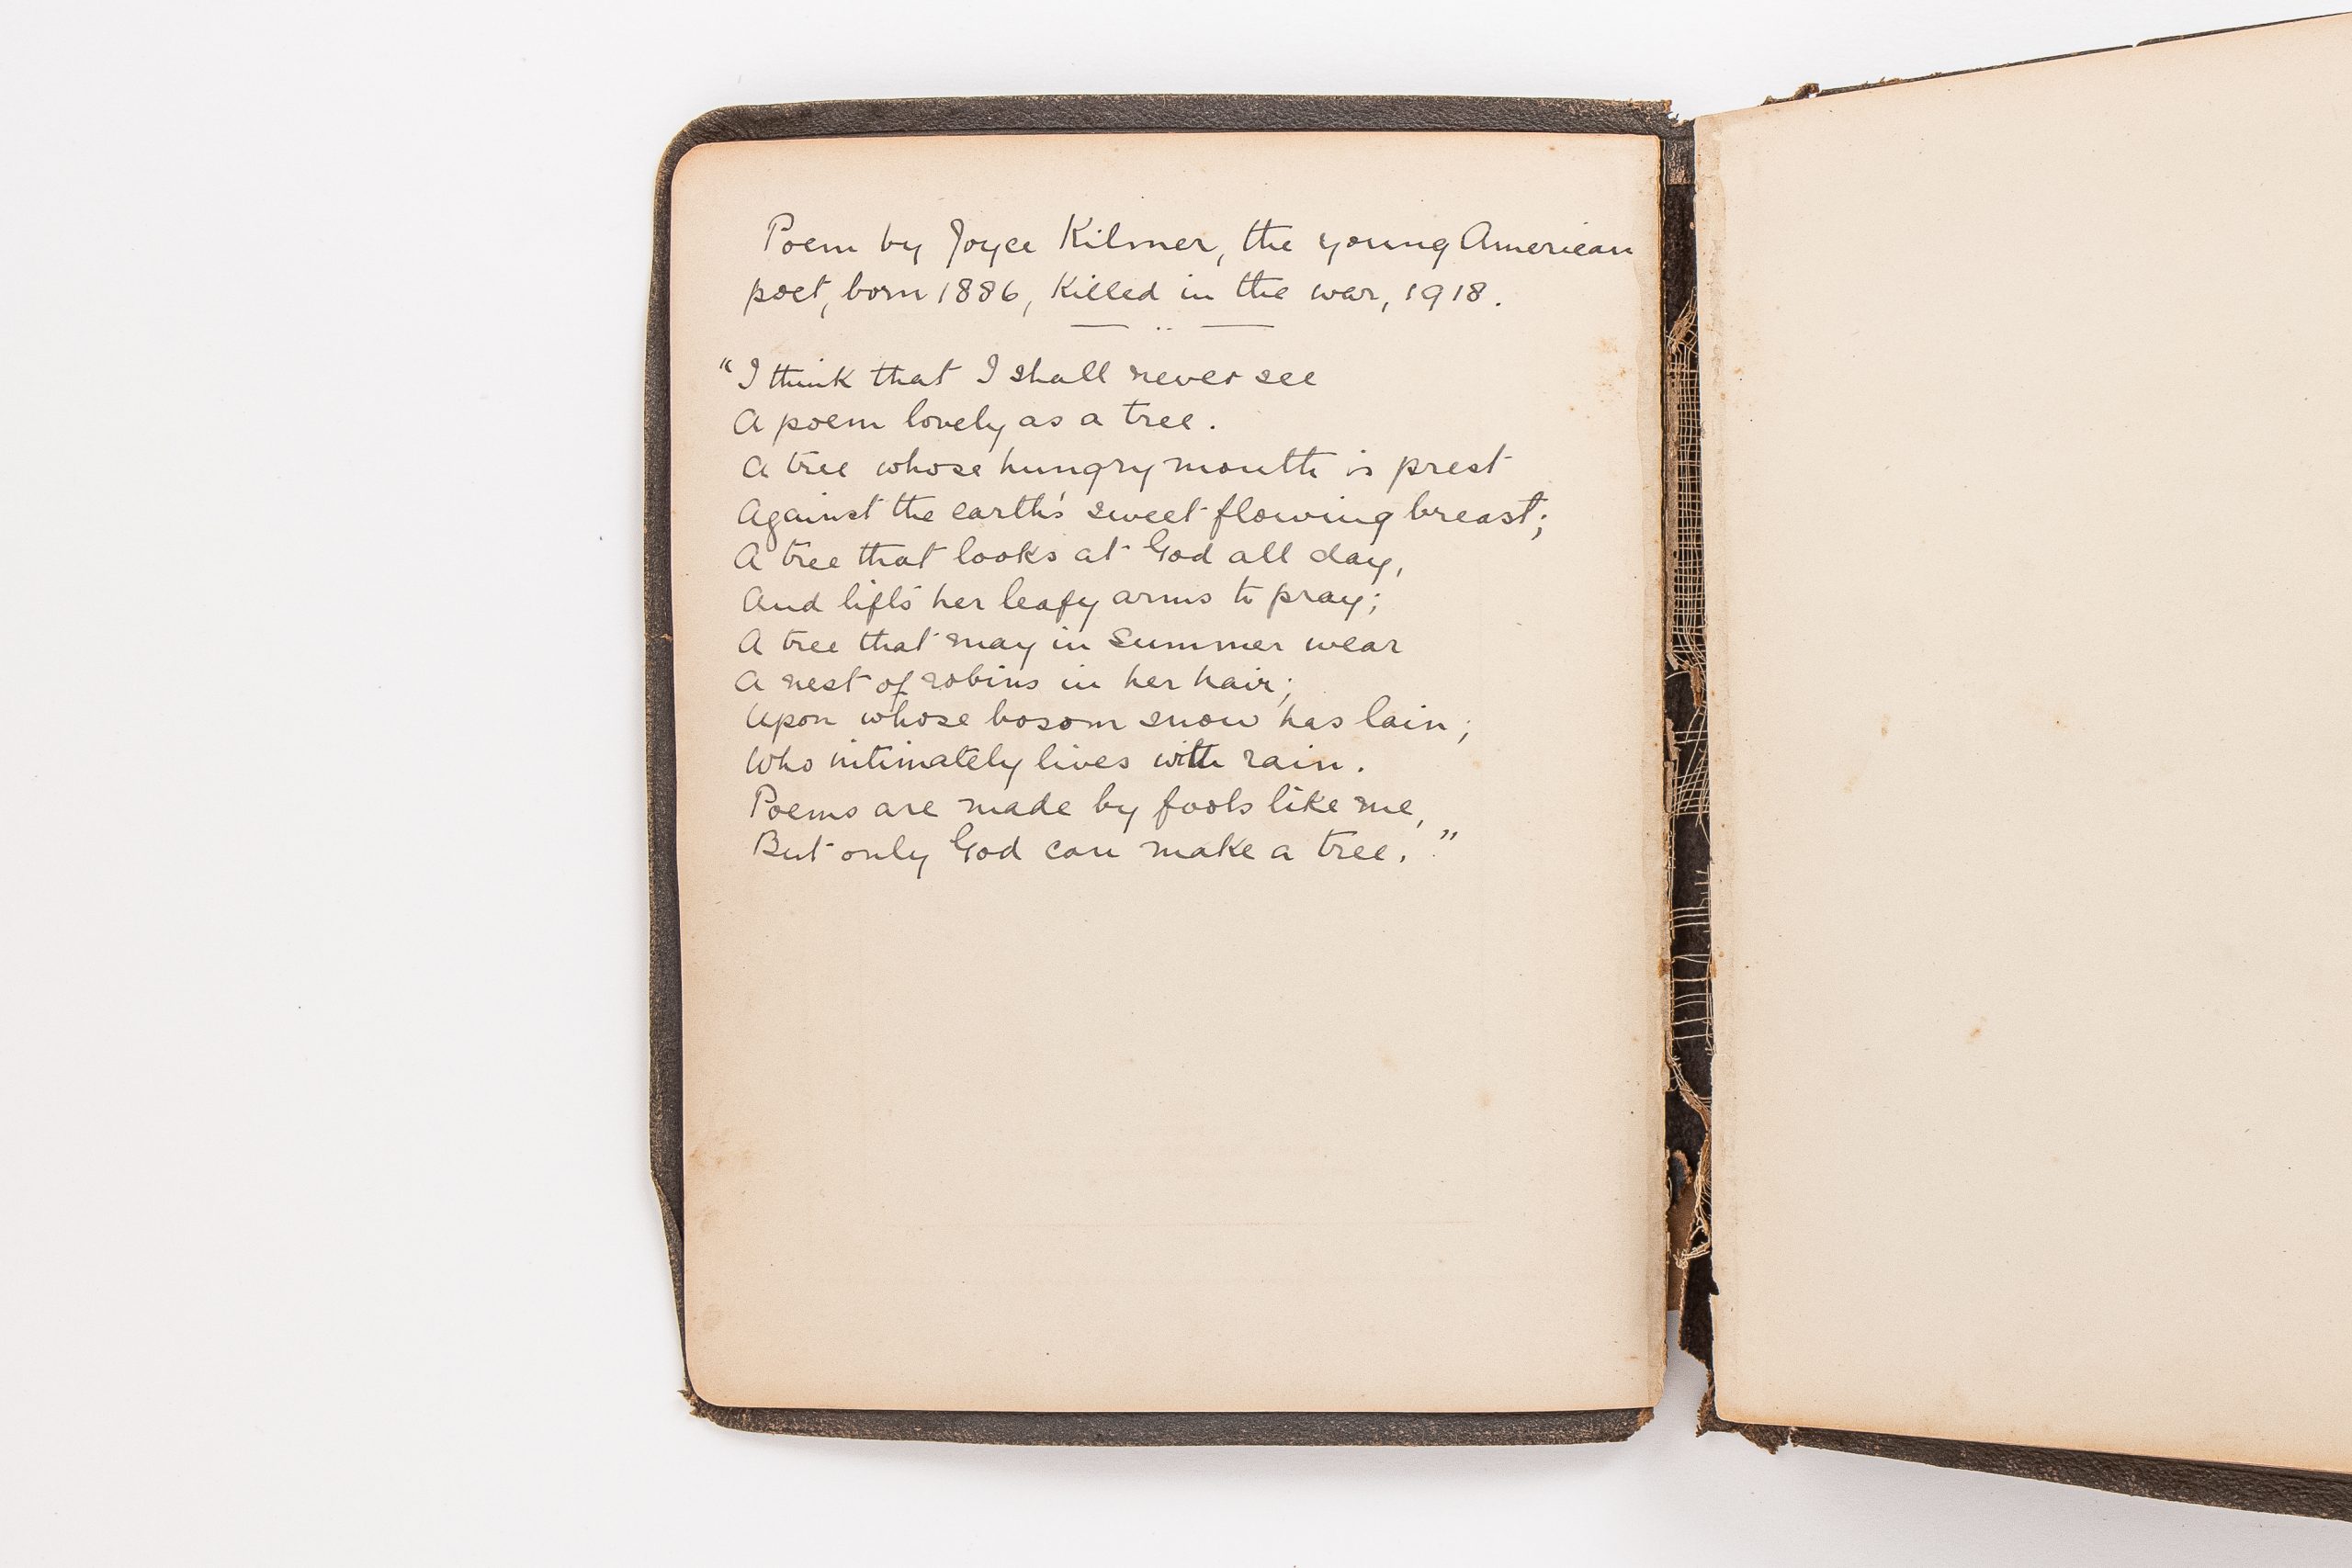 Poem by Joyce Kilmer, the young American
poet, born 1886, Killed in the war, 1918.
"I think that I shall never see
A poem lovely as a tree.
A tree whose hungry mouth is prest
Against the earth's sweet flowing breast;
A tree that looks at God all day,
And lifts her leafy arms to pray;
A tree that may in Summer wear
A nest of robins in her hair;
Upon whose bosom snow has lain;
Who intimately lives with rain.
Poems are made by fools like me,
But only God can make a tree."